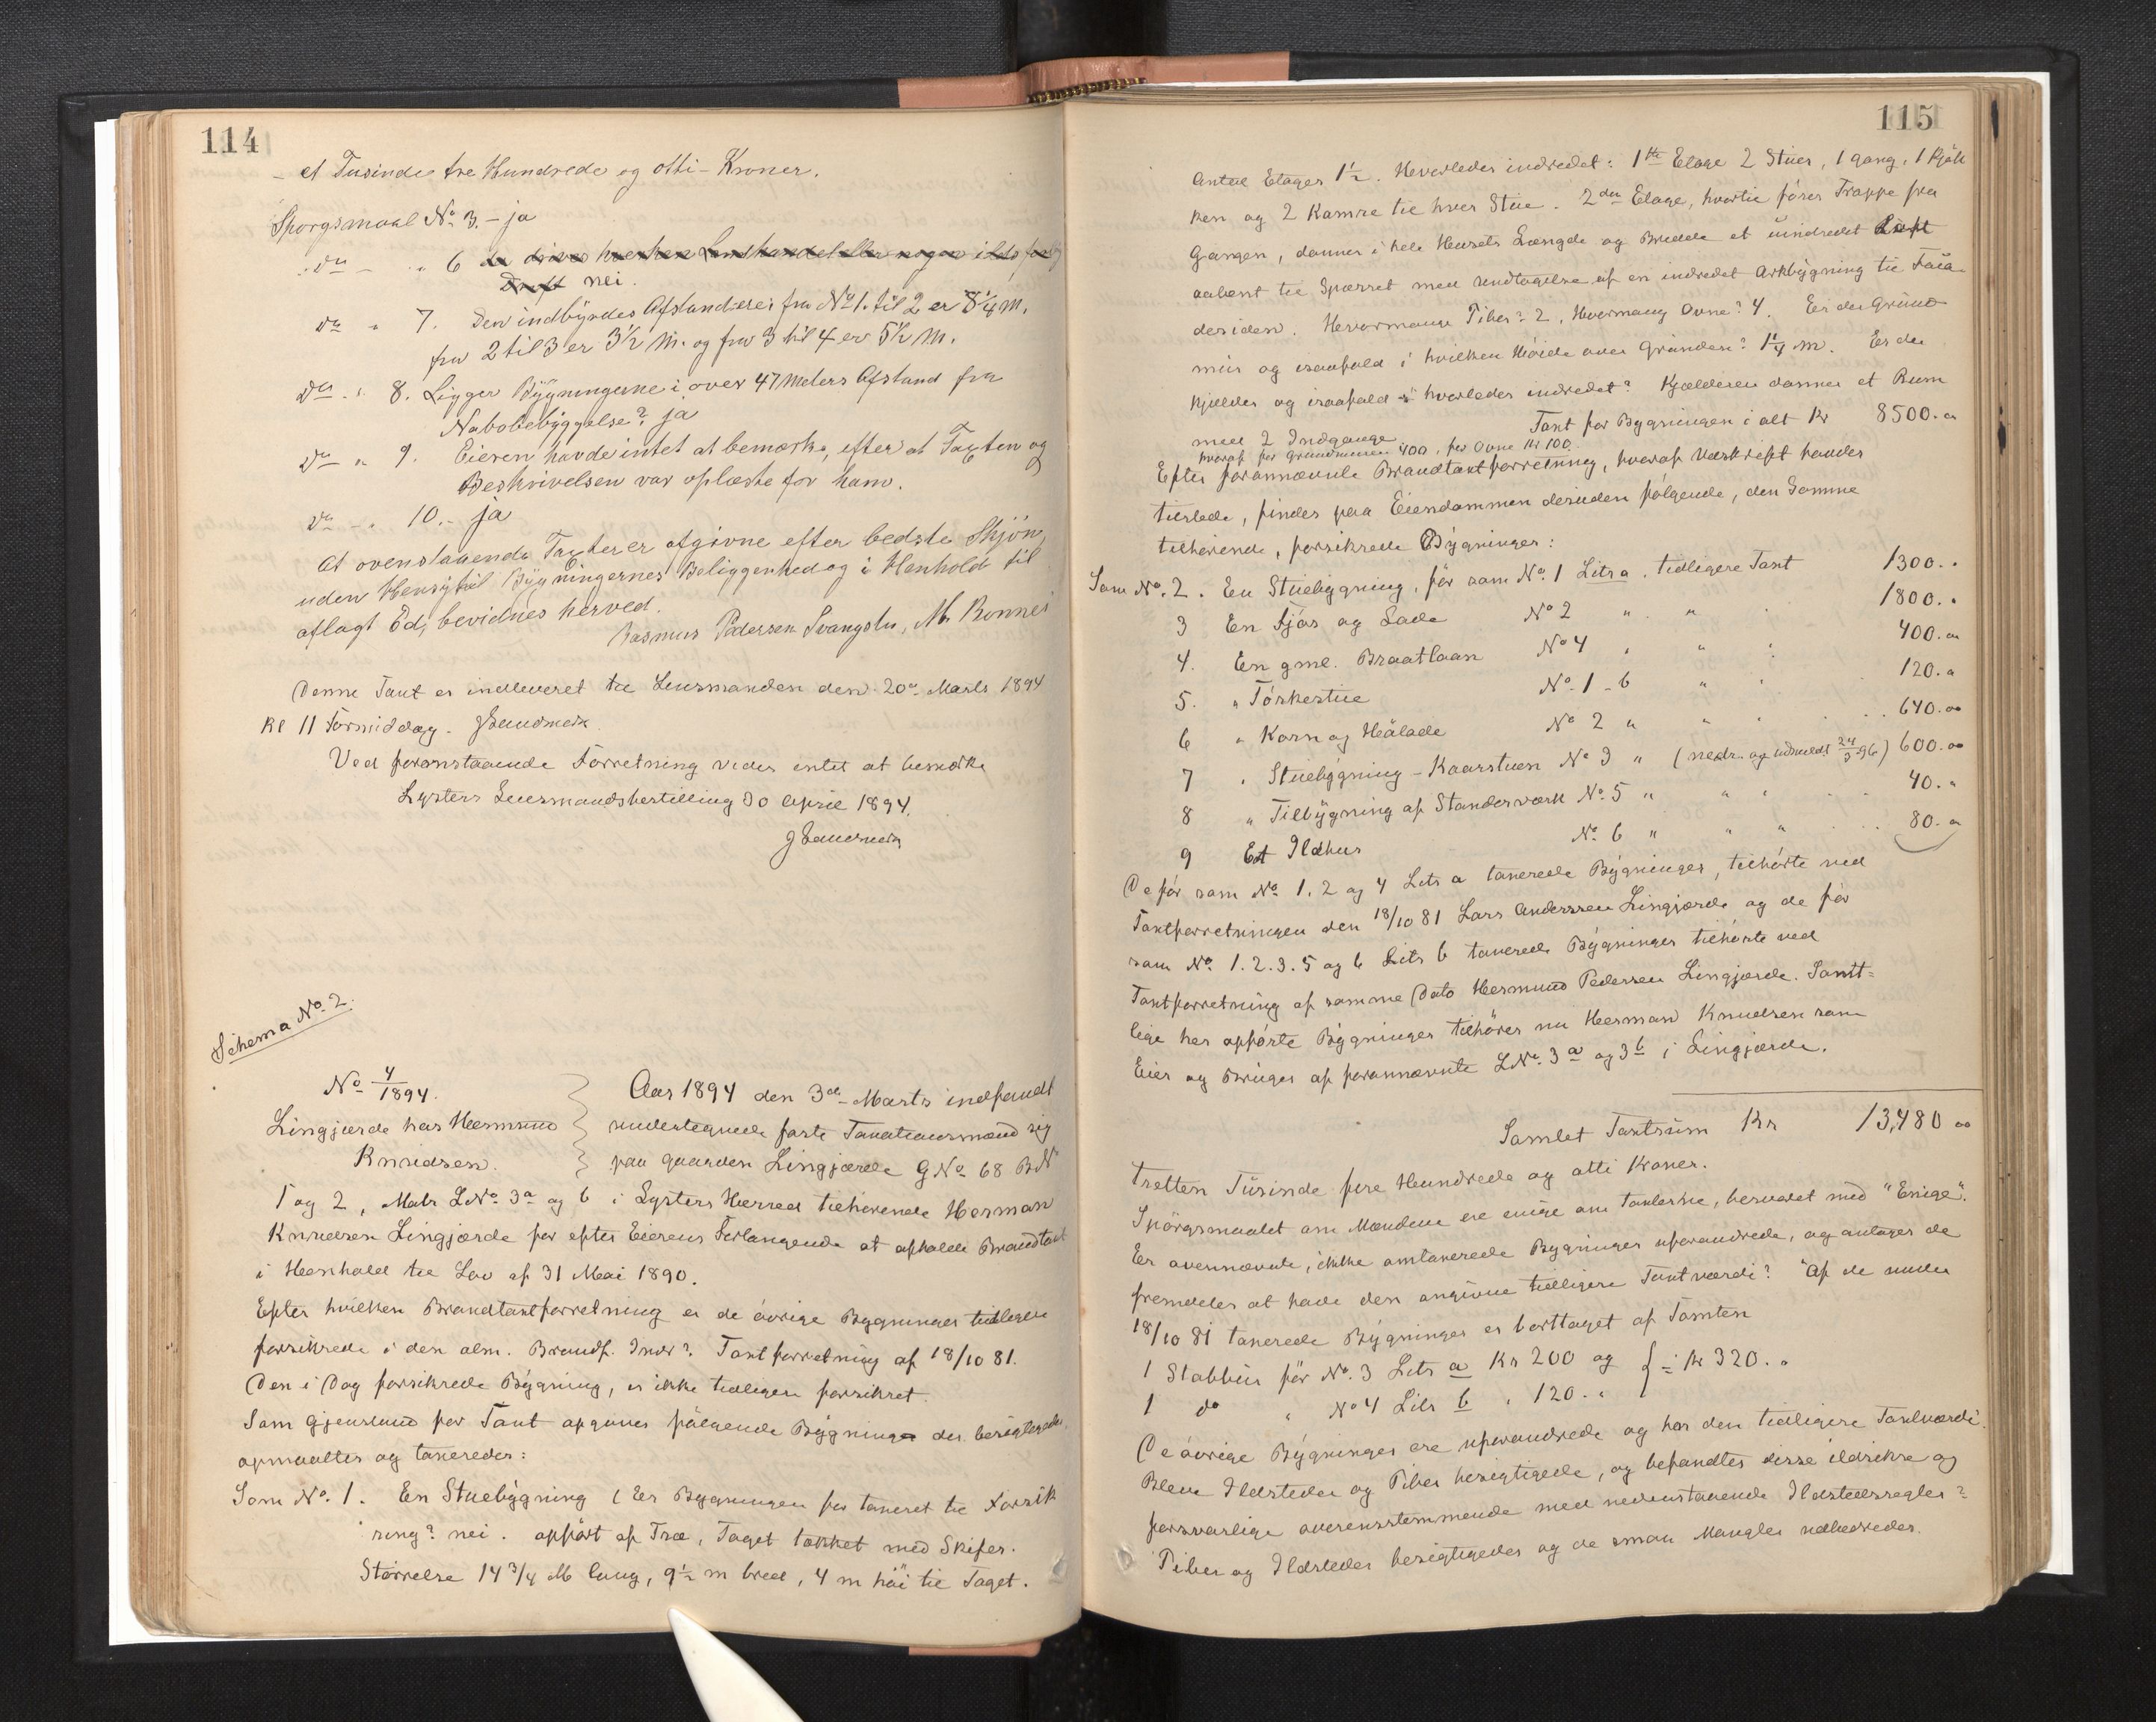 114
et Tusinde tre Hundrede og otti - Kroner.
Spørgsmaal No 3. - ja
do - " 6 der drives hverken Landhandel eller nogen ildsfarlig
Drift nei.
do " 7. Den indbyrdes Afstand er: fra No 1. til 2 er 8 1/4 M.
fra 2 til 3 er 3 1/2 M. og fra 3 til 4 er 5 1/2 M.
do - " 8. Ligger Bygningerne i over 47 Meters Afstand fra
Nabobebyggelse? ja
do - " 9. Eieren havde intet at bemærke, efter at Taxten og
Beskrivelsen var oplæste for ham.
do - " 10. - ja
At ovenstaaende Taxter er afgivne efter bedste Skjøn,
uden Hensyn til Bygningernes Beliggenhed og i Henhold til
aflagt Ed, bevidnes herved.
Rasmus Pedersen Svangstu, M. Bonnei
Denne Taxt er indleveret til Lensmanden den 20de Marts 1894
Kl 11 Formiddag. JSandmark
Ved foranstaaende Forretning vides intet at bemærke
Lysters Lensmandsbestilling 30 April 1894.
JSandmark
Schema No. 2.
No 4/1894.
Lingjærde hos Hermund
Knudsen.
Aar 1894 den 3de Marts indfandt
undertegnede faste Taxationsmænd sig
paa gaarden Lingjærde GNo 68 BN
1 og 2, Matr LNo 3a og b i Lysters Herred tilhørende Herman
Knudsen Lingjærde for efter Eierens Forlangende at afholde Brandtaxt
i Henhold til Lov af 31 Mai 1890.
Efter hvilken Brandtaxtforretning er de øvrige Bygninger tidligere
forsikrede i den alm. Brandf. Indr? Taxtforretning af 18/10 81.
Den i Dag forsikrede Bygning, er ikke tidligere forsikret.
Som Gjenstand for Taxt opgives følgende Bygninger der besigtigedes,
opmaaltes og taxeredes:
Som No. 1. En Stuebygning (Er Bygningen før taxeret til Forsik
ring? nei. opført af Træ, Taget tækket med Skifer.
Størrelse 14 3/4 M lang, 9 1/2 m bred, 4 m høi til Taget.
115
Antal Etager 1 1/2. Hvorledes indredet: 1ste Etage 2 Stuer, 1 gang, 1 Kjøk
ken og 2 Kamre til hver Stue. 2den Etage, hvortil fører Trappe fra
Gangen, danner i hele Husets Længde og Bredde et uindredet Loft
aabent til Sparret med Undtagelse af en indredet Arkbygning til Faca
desiden. Hvormange Piber? 2, Hvormang Ovne? 4. Er der Grund
mur og isaafald i hvilken Høide over Grunden? 1 1/4 m. Er der
Kjelder og isaafald hvorledes indredet? Kjælderen danner et Rum
med 2 Indgange Taxt for Bygningen i alt Kr 8500.00
hvoraf for Grundmuren 400, for Ovne Kr 100.
Efter forannævnte Brandtaxtforretning, hvoraf Udskrift havdes
tilstede, findes paa Eiendommen desuden følgende, den Samme
tilhørende, forsikrede Bygninger:
Som No. 2. En Stuebygning, før som No 1 Litra a. tidligere Taxt 1300. "
3 En Fjøs og Lade No 2 " " " 1800. "
4. En gml. Braatlaan No 4 " " " 400. 00
5. " Tørkestue No. 1 - b " " 120. "
6 " Korn og Hølade No 2 " " " 640. 00
7 " Stuebygning - Kaarstuen No 3 " (nedr. og udmeldt 24/3 96) 600. 00
8 " Tilbygning af Standerværk No. 5 " " " 40. "
9 Et Ildhus No. 6 " " " 80. "
De før som No 1. 2 og 4 Litr a taxerede Bygninger, tilhørte ved
Taxtforretningen den 18/10 81 Lars Anderssen Lingjærde og de før
som No. 1. 2. 3. 5 og 6 Litr b taxerede Bygninger tilhørte ved
Taxtforretning af samme Dato Hermund Pedersen Lingjærde. Samt=
lige her opførte Bygninger tilhører nu Herman Knudsen som
Eier og Bruger af forannævnte LNo. 3a og 3b i Lingjærde.
Samlet Taxtsum Kr 13,480 00
Tretten Tusinde fire Hundrede og otti Kroner.
Spørgsmaalet om Mændene ere enige om Taxterne, besvaret med "Enige".
Er ovennævnte, ikke omtaxerede Bygninger uforandrede, og antages de
fremdeles at have den angivne tidligere Taxtværdi? "Af de under
18/10 81 taxerede Bygninger er borttaget af Tomten
1 Stabbur før No. 3 Litr a Kr 200 og } ÷ Kr 320. "
1 do " No 4 Litr b " 120. "
De øvrige Bygninger ere uforandrede og har den tidligere Taxtværdi.
Bleve Ildsteder og Piber besigtigede, og befandtes disse ildsikre og
forsvarlige overensstemmende med nedenstaaende Ildstedsregler?
Piber og Ildsteder besigtigedes og de smaa Mangler udbedredes.